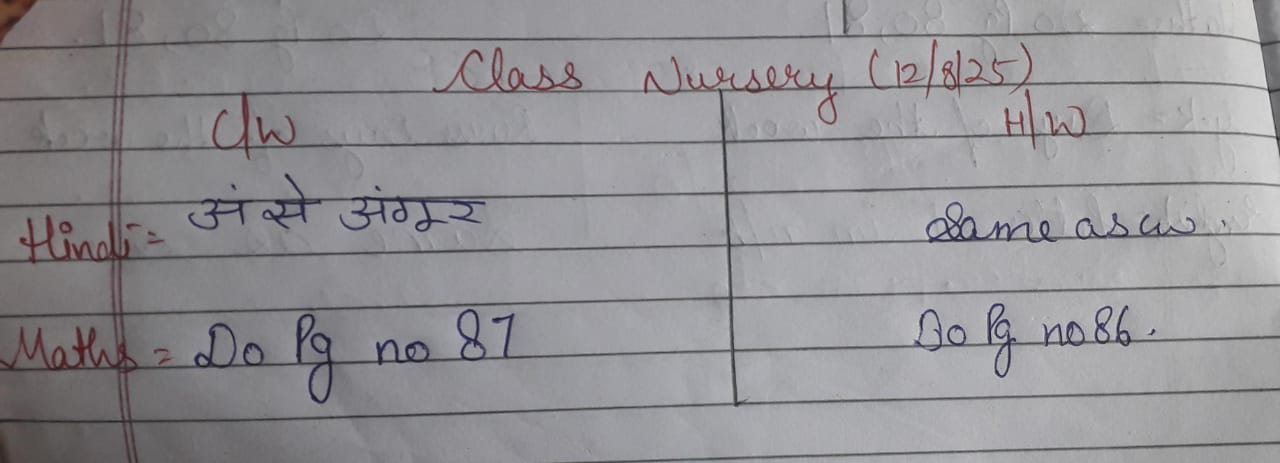 Class Nursery (12/8/25)
C/W H/W
Hindi = अं से अंगूर Same as cw.
Maths = Do Pg no 87 Do Pg no 86.